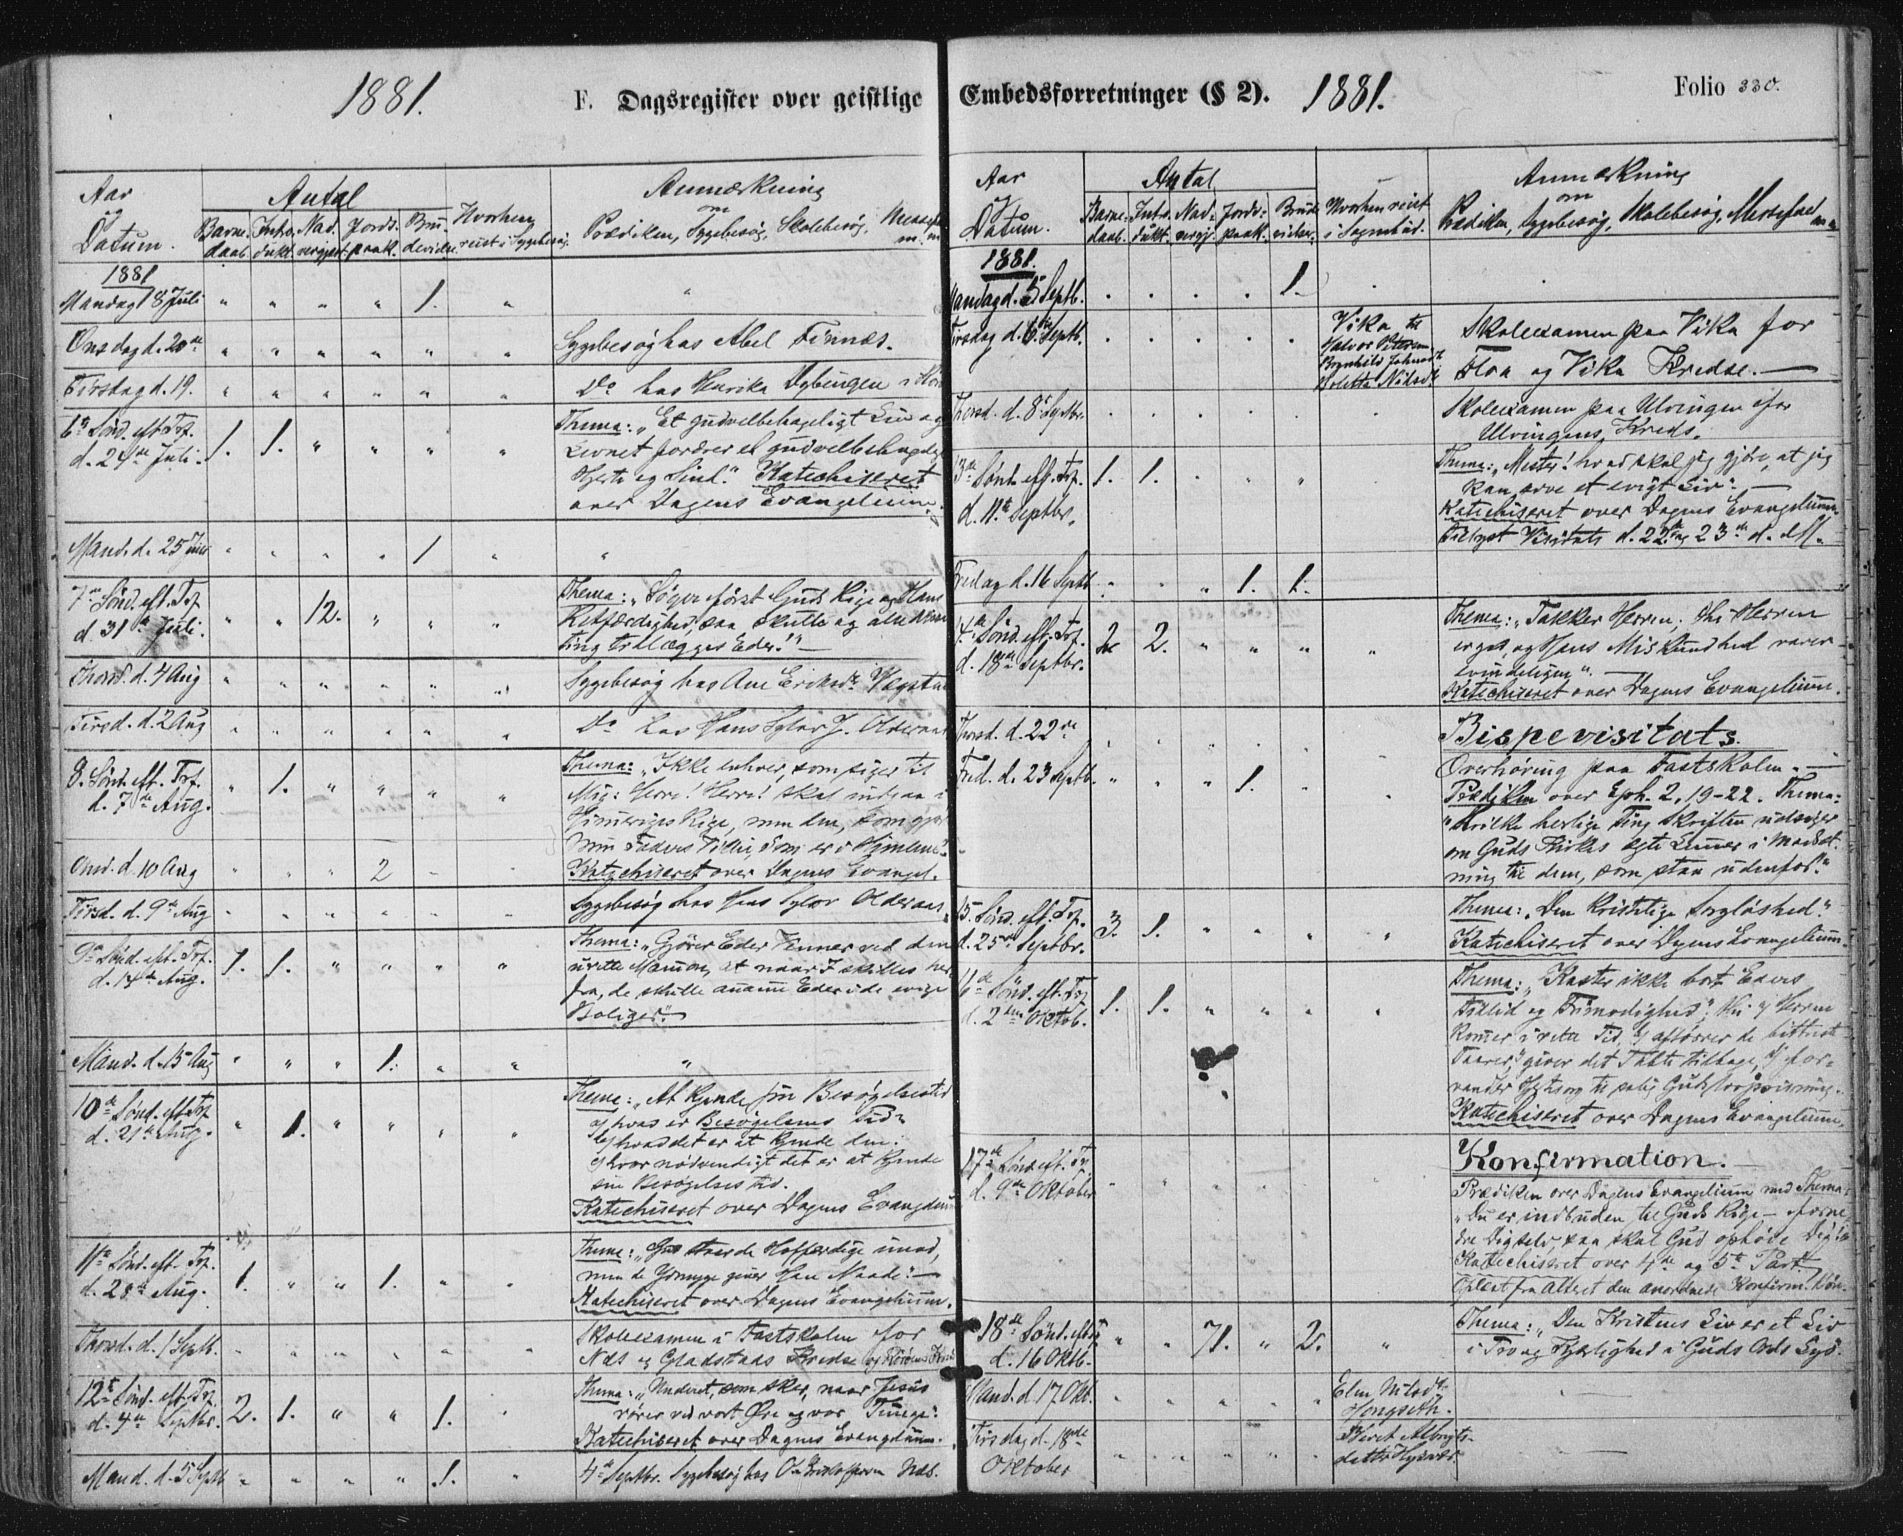 1881.
F. Dagsregister over geistlige
Aar
og
Datum.
Antal
Barnedaab.
Introdukt.
Nadvergjæst.
Jordspaak.
Brudevielser
Hvorhen reist i Sygebesøg
Anmærkning
om
Prædiken, Sygebesøg, Skolebesøg, Messefald m. m.
1881
Mandag 18 Juli " " " " 1. " "
Onsdag d. 20de " " " " " " Sygebesøg hos Abel Finnæs.
Tirsdag d. 19. " " " " " " Do hos Henrika Dybingen
6te Sønd. eft. Trf.
d. 24de Juli. 1. 1. " " " "
Thema: "Et gudvelbehageligt Liv og
Levnet fordrer et gudvelbehageligt
Hjerte og Sind." Katechiseret
over Dagens Evangelium.
Mand. d. 25 Juli " " " " 1 " "
7de Sønd. eft. Trf
d. 31te Juli. " " 12. " " "
Thema: "Søger først Guds Rige og Hans
Retfærdighed, saa skulle og alle disse
Ting tillægges Eder!" —
Thorsd. d. 4 Aug " " " " " " Sygebesøg hos Ane Eriksdr.
Tirsd. d. 2 Aug " " " " " " Do hos Hans Sylor J. Olderaas
8. Sønd. eft. Trf.
d. 7de Aug. " 1. " " " "
Thema: "Ikke enhver, som siger til
Mig: Herre! Herre! skal indgaa i
Himmeriges Rige, men den, som gjør
Min Faders Villie, som er i Himlene".
Katechiseret over Dagens Evangel.
Onsd. d. 10 Aug " " " 2 " "
Tirsd. d. 9de Aug " " " " " " Sygebesøg hos Hans Sylor Olderaas
9de Sønd. eft. Trf.
d. 14de Aug. 1. 1. " " " "
Thema: "Gjører Eder Venner ved den
urette Mammon, at naar I skilles her-
fra, de skulle anamme Eder i de evige
Boliger".
Mand. d. 15 Aug " " " 1. " " "
10de Sønd. eft. Trf
d. 21de Aug. " 1. " " " "
Thema: "At kjende sin Besøgelsestid
a) hvad er Besøgelsens Tid
b) hvad det er at kjende den:
c) hvor nødvendigt det er at kjende
sin Besøgelses tid.
Katechiseret over Dagens Evangelium
11te Sønd. eft. Trf.
d. 28de Aug. 1. " " 1. " "
Thema: "Gud staar de Hoffærdige imod,
men de Ydmyge giver Han Naade". —
Katechiseret over Dagens Evangelium.
Thorsd. d. 1 Septb. " " " " " "
Skolexamen i Fastskolen for
Næs og Gladstads Kredse
12te Sønd. eft. Trf
d. 4de Septbr. 2. 1. " " 1. "
Thema: "Underet, som sker, naar Jesus
rører ved vort Øre og vor Tunge".
Katechiseret over Dagens Evangelium.
Mand. d. 5 Septb " " " " 1. "
4de Septbr. Sygebesøg hos Ole Kristoffersen Næs.
Embedsforretninger (§ 2). 1881. Folio 330.
Aar
og
Datum.
Antal
Barnedaab.
Introdukt.
Nadvergj.
Jordspaak.
Brudevielser.
Hvorhen reist i Sognebud.
Anmærkning
om
Prædiken, Sygebesøg, Skolebesøg, Messefald m. m.
1881.
Mandag d. 5 Septb. . . . . 1. . .
Tirsdag d. 6te Septb. . . . . .
Vika til
Halvor Petersen
Brynhild Johnsdt.
Skolexamen paa Vika for
Floa og Vika Kredse. —
Thorsd. d. 8de Septbr. . . . . . .
Skolexamen paa Ulvingen for
Ulvingens Kreds.
13de Sønd. eft. Trf.
d. 11te Septbr. 1. 1. . " "
Thema: "Mester! hvad skal jeg gjøre, at jeg
kan arve et evigt Liv". —
Katechiseret over Dagens Evangelium.
Tillyst Visitats d. 22de og 23de d. M.
Fredag d. 16 Septb. . . " 1. 1.
14de Sønd. eft. Trf.
d. 18de Septbr. 2. 2. " " " "
Thema: "Takker Herren, thi Herren
er god, og Hans Miskundhed varer
evindeligen". —
Katechiseret over Dagens Evangelium.
Torsd. d. 22de . . . . . .
Fred. d. 23 Septb. " " " 1. " "
Bispevisitats.
Overhøring paa Fastskolen. —
Prædiken over Eph. 2, 19-22. Thema:
"Hvilke herlige Ting Skriften udsiger
om Guds Kirkes egte Lemmer i Modsæt-
ning til dem, som staa udenfor."
15. Sønd. eft. Trf.
d. 25de Septbr. 3. 1. " " " "
Thema: "Den kristelige Sorgløshed."
Katechiseret over Dagens Evangelium.
16de Sønd. eft. Trf
d. 2den Oktob. 1. 1. " " " "
Thema: "Kaster ikke bort Eders
Tillid og Frimodighed"; thi a) Herren
kommer i rette Tid, b) aftørrer de bittreste
Taarer, c) giver det Tabte tilbage, d) for-
vandler
Katechiseret over Dagens Evangelium.
17de Sønd. eft. Trf.
d. 9de Oktober " " " " " "
Konfirmation. —
Prædiken over Dagens Evangelium med Thema:
"Du er indbuden til Guds Rige — forne-
dre Dig selv, saa skal Gud ophøie Dig".
Katechiseret over 4de og 5te Part
Oplæst fra Alteret den anordnede Konfirm. Bøn.
18de Sønd. eft. Trf
d. 16 Oktb. " " 71. " 2. "
Thema: "Den Kristnes Liv er et Liv
i Tro og Kjærlighed i Guds Ords Lys.
Mand. d. 17 Okt. " " " " "
Elen Nilsdt.
Hongseth.
—
Tirsdag d. 18de
Oktober " " " " "
Beret Albrigts-
datter
—